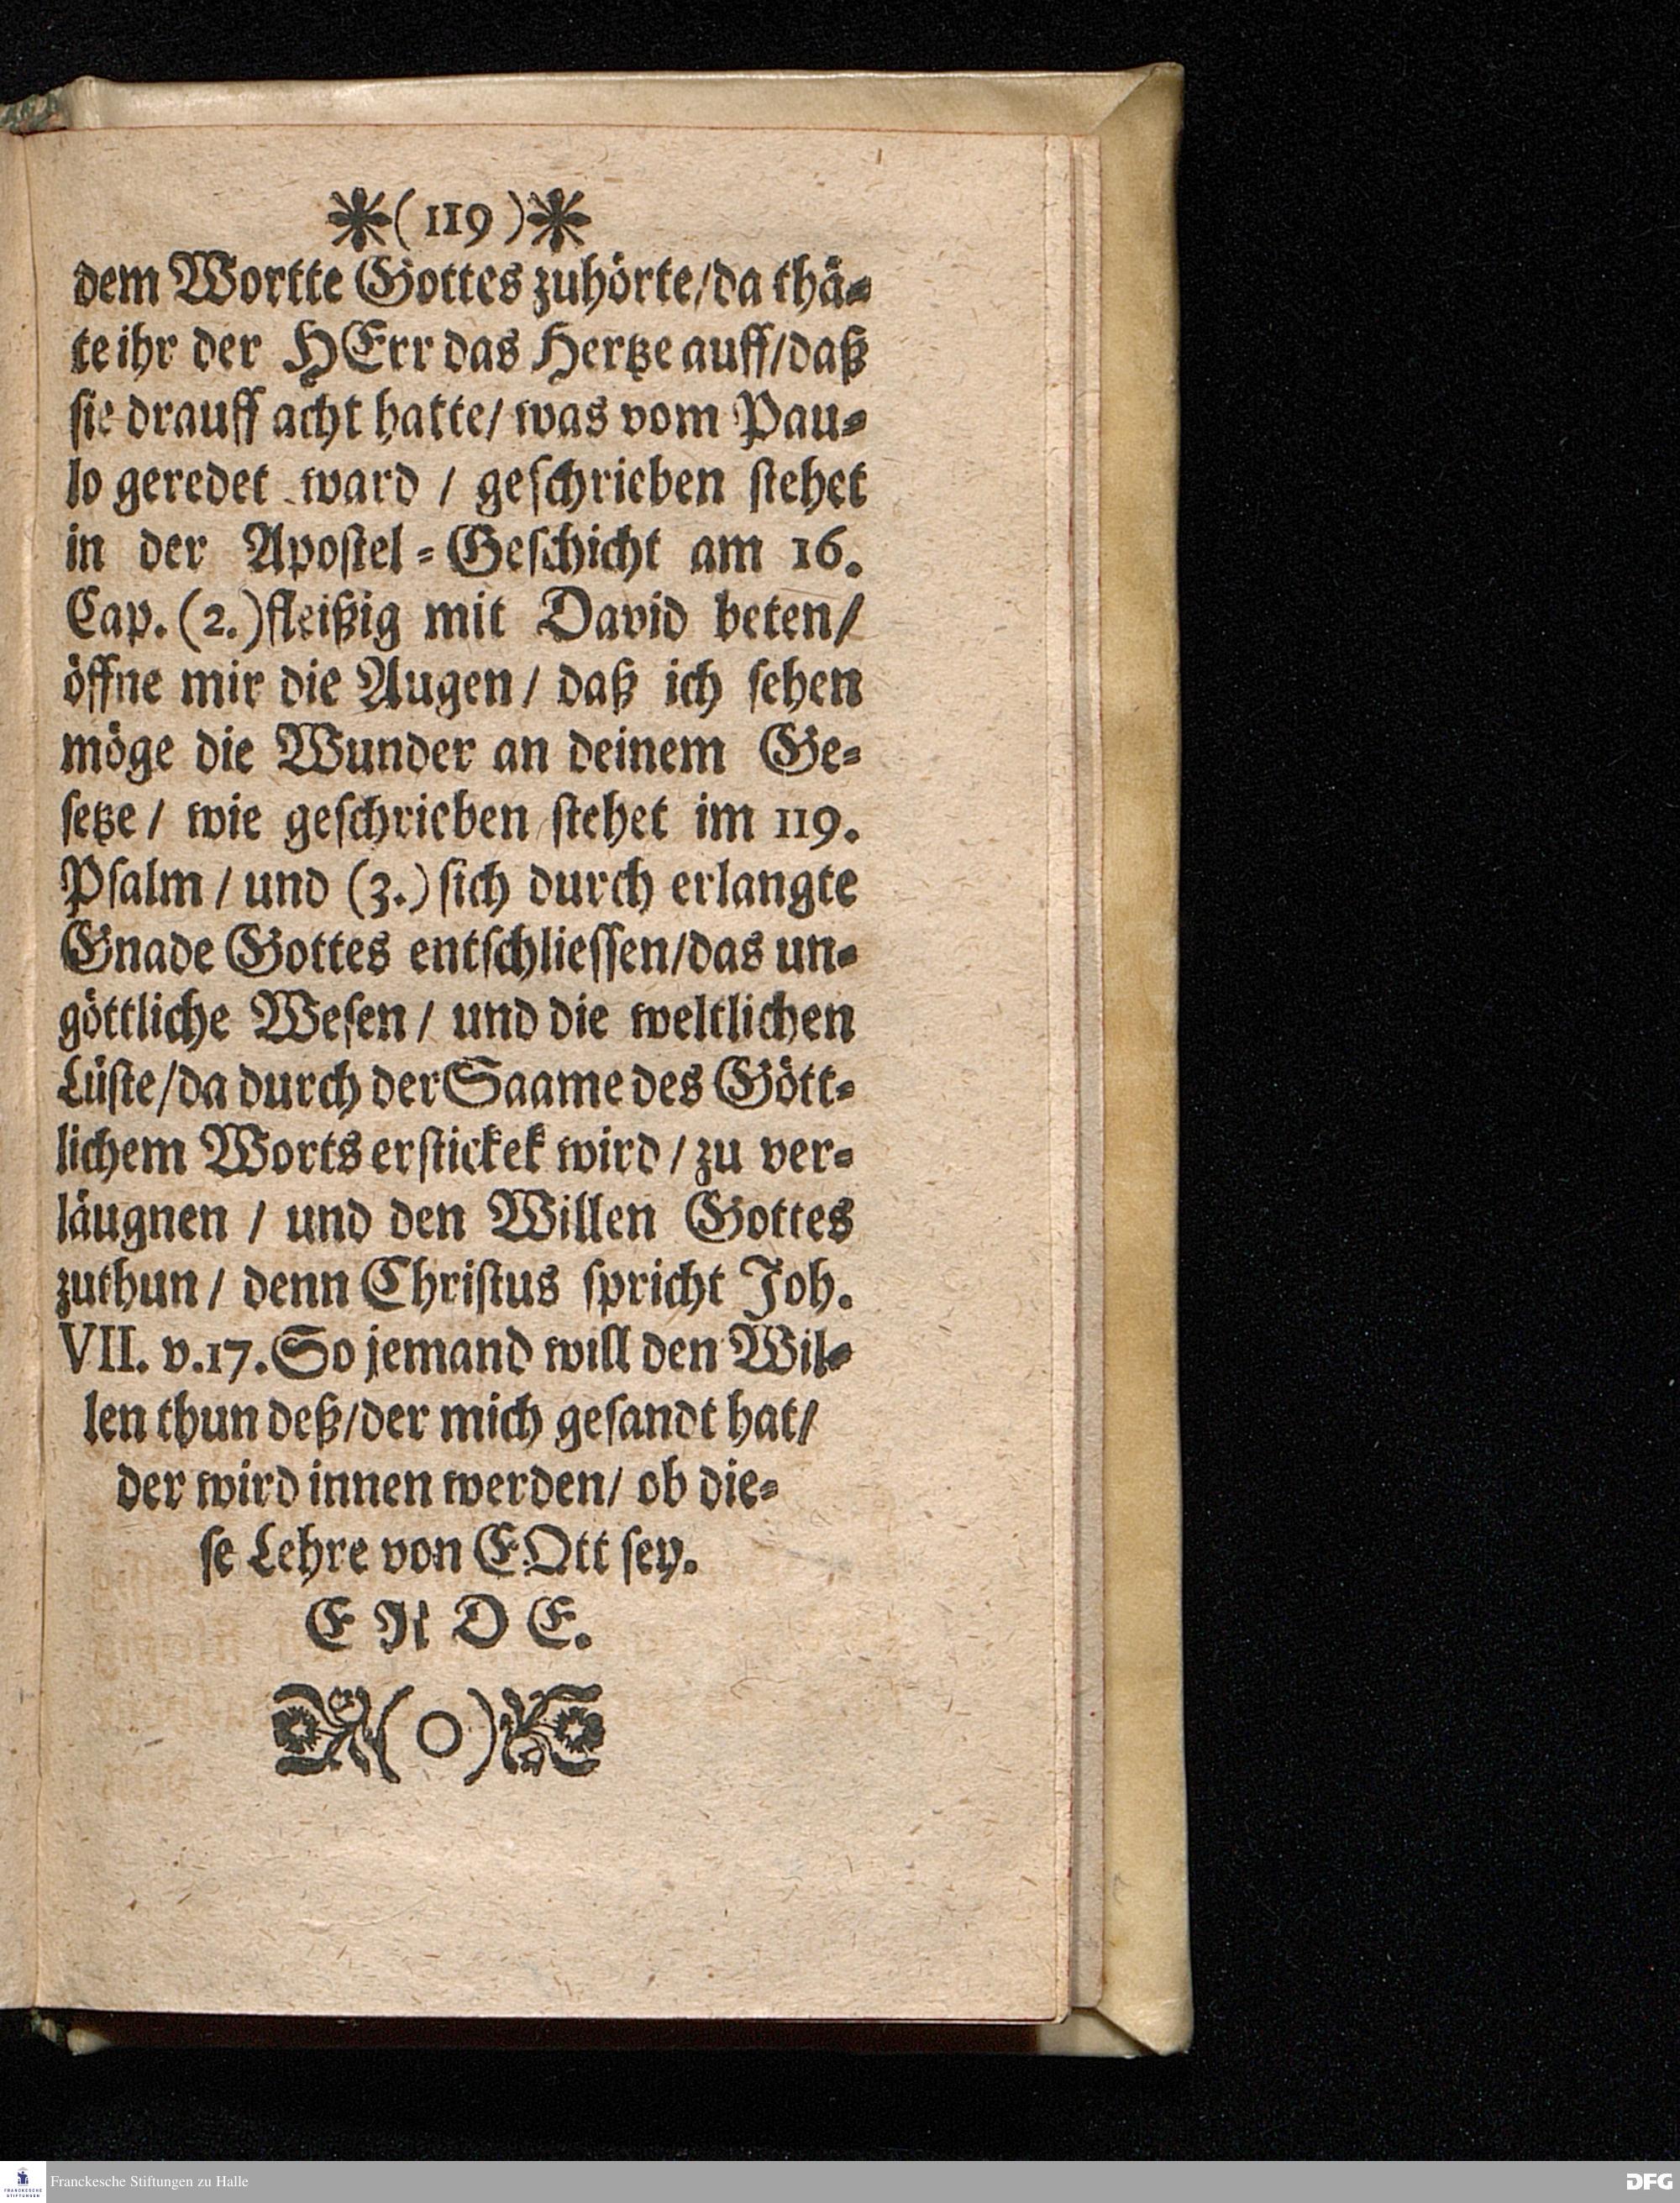 (119)
dem Wortte Gottes zuhörte/da thä-
te ihr der HErr das Hertze auff/daß
sie drauff acht hatte/ was vom Pau-
lo geredet ward / geschrieben stehet
in der Apostel-Geschicht am 16.
Cap. (2.) fleißig mit David beten/
öffne mir die Augen / daß ich sehen
möge die Wunder an deinem Ge-
setze / wie geschrieben stehet im 119.
Psalm / und (3.) sich durch erlangte
Gnade Gottes entschliessen/das un-
göttliche Wesen / und die weltlichen
Lüste/da durch der Saame des Gött-
lichem Worts ersticket wird / zu ver-
läugnen / und den Willen Gottes
zuthun / denn Christus spricht Joh.
VII. v.17. So jemand will den Wil-
len thun deß/der mich gesandt hat/
der wird innen werden/ ob die-
se Lehre von GOtt sey.
E N D E.
(O)
Franckesche Stiftungen zu Halle
DFG